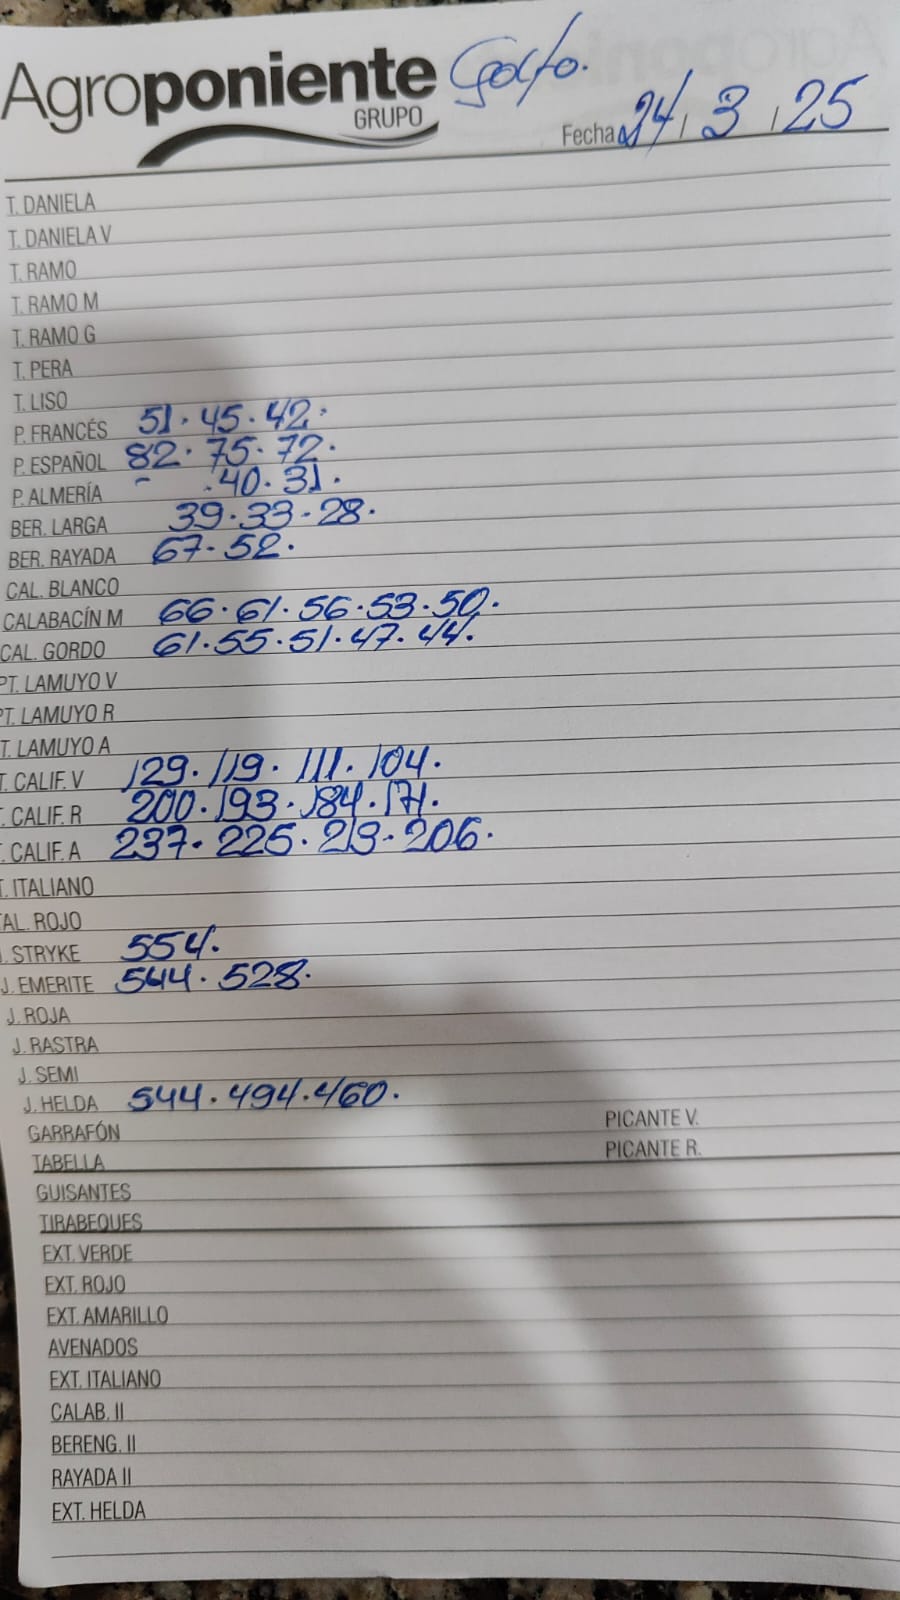 Agroponiente Golfo.
GRUPO
Fecha 24/3/25
T. DANIELA
T. DANIELA V
T. RAMO
T. RAMO M
T. RAMO G
T. PERA
T. LISO
P. FRANCÉS 51. 45. 42.
P. ESPAÑOL 82. 75. 72.
P. ALMERÍA - .40. 31.
BER. LARGA 39. 33. 28.
BER. RAYADA 67. 52.
CAL. BLANCO
CALABACÍN M 66. 61. 56. 53. 50.
CAL. GORDO 61. 55. 51. 47. 44.
PT. LAMUYO V
PT. LAMUYO R
T. LAMUYO A
T. CALIF. V 129. 119. 111. 104.
. CALIF. R 200. 193. 184. 171.
. CALIF. A 237. 225. 213. 206.
T. ITALIANO
AL. ROJO
. STRYKE 554.
J. EMERITE 544. 528.
J. ROJA
J. RASTRA
J. SEMI
J. HELDA 544. 494. 460.
GARRAFÓN PICANTE V.
TABELLA PICANTE R.
GUISANTES
TIRABEQUES
EXT. VERDE
EXT. ROJO
EXT. AMARILLO
AVENADOS
EXT. ITALIANO
CALAB. II
BERENG. II
RAYADA II
EXT. HELDA